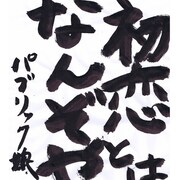 初恋とは
なんぞや
パブリック娘